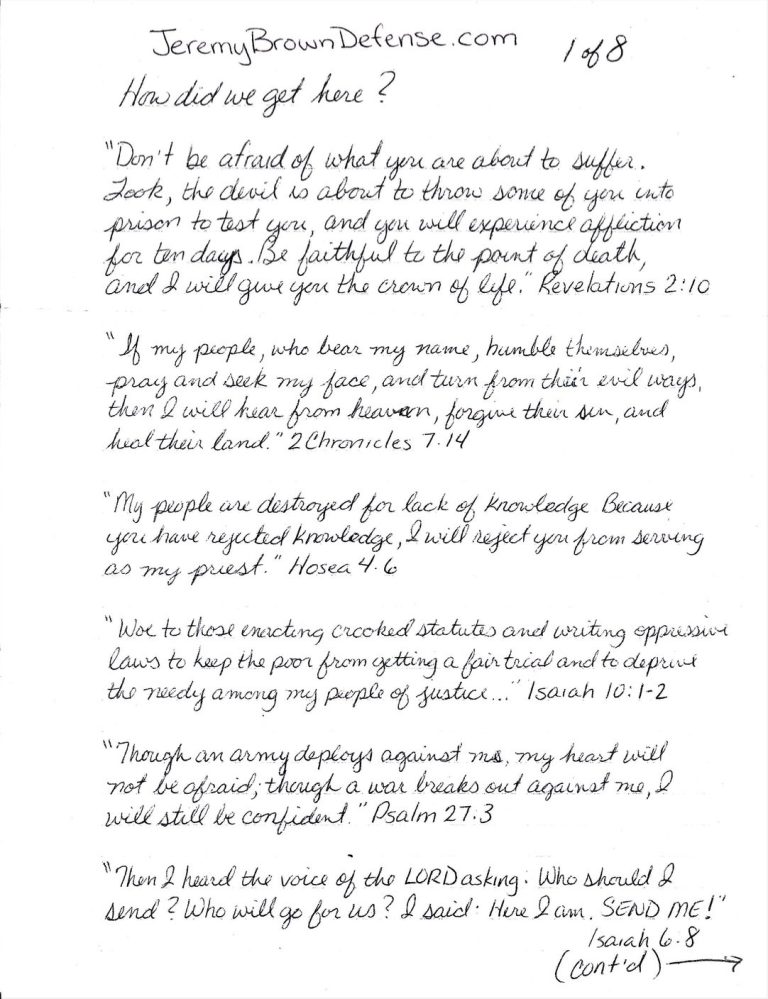 JeremyBrownDefense.com 1 of 8
How did we get here?
"Don't be afraid of what you are about to suffer.
Look, the devil is about to throw some of you into
prison to test you, and you will experience affliction
for ten days. Be faithful to the point of death,
and I will give you the crown of life." Revelations 2:10
"If my people, who bear my name, humble themselves,
pray and seek my face, and turn from their evil ways,
then I will hear from heaven, forgive their sin, and
heal their land." 2 Chronicles 7.14
"My people are destroyed for lack of knowledge Because
you have rejected knowledge, I will reject you from serving
as my priest." Hosea 4.6
"Woe to those enacting crooked statutes and writing oppressive
laws to keep the poor from getting a fair trial and to deprive
the needy among my people of justice..." Isaiah 10:1-2
"Though an army deploys against me, my heart will
not be afraid; though a war breaks out against me, I
will still be confident." Psalm 27.3
"Then I heard the voice of the LORD asking: Who should I
send? Who will go for us? I said: Here I am. SEND ME!"
Isaiah 6.8
(cont'd) →